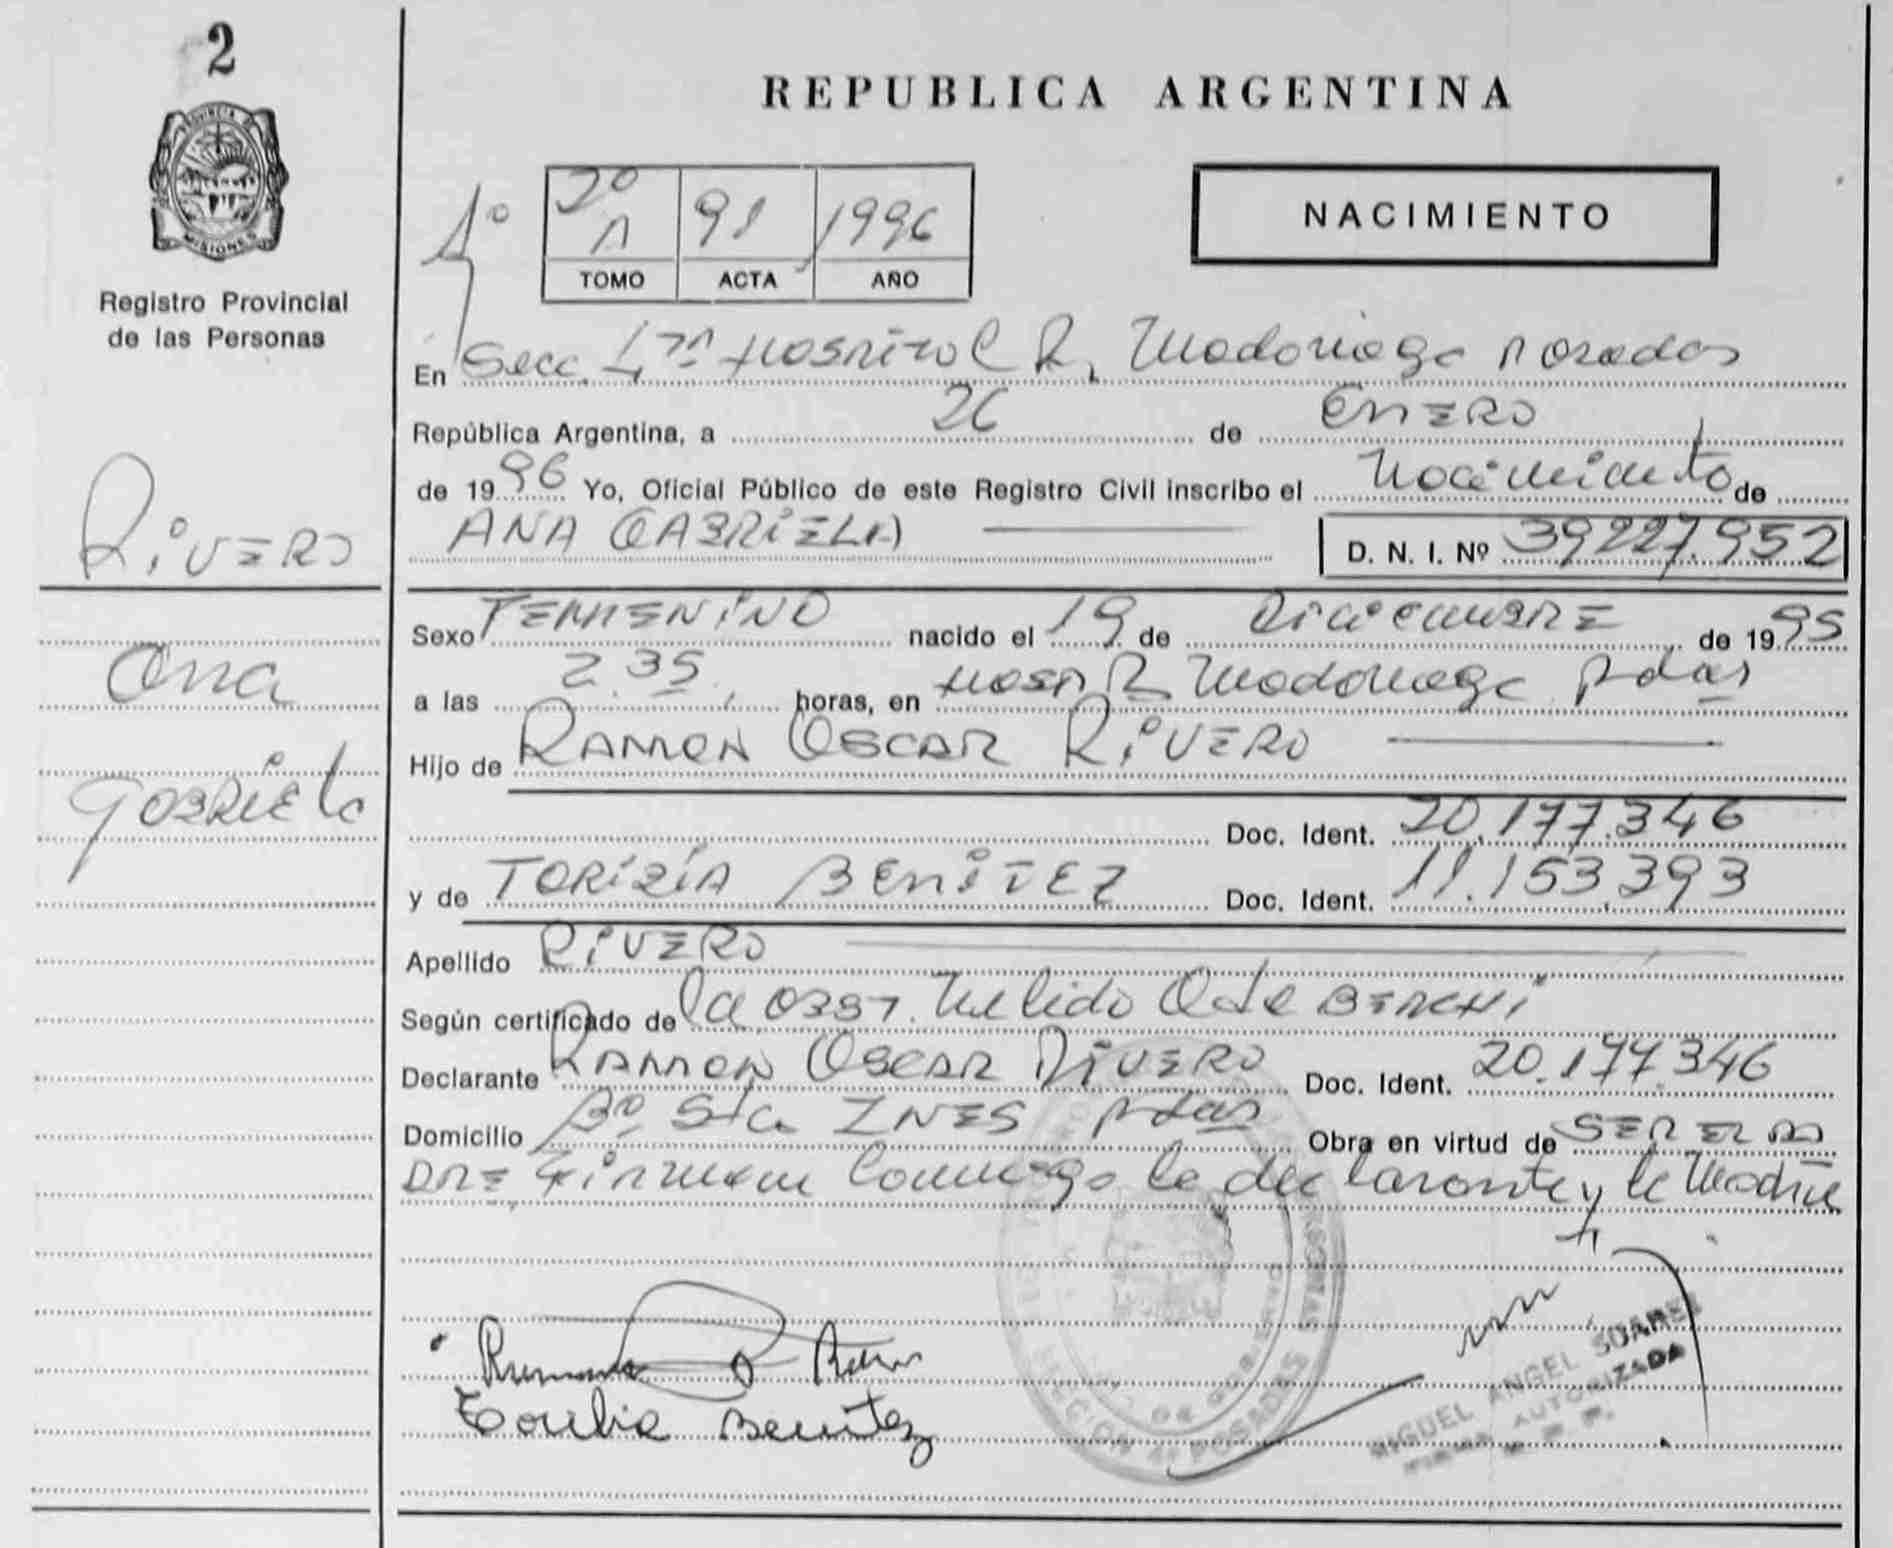 2
PROVINCIA DE
MISIONES
Registro Provincial
de las Personas
RIVERO
Ana
GABRIELA
REPUBLICA ARGENTINA
1º
2º A 91 1996
TOMO ACTA AÑO
NACIMIENTO
En Secc. 4ta Hospital R. Madariaga Posadas
República Argentina, a 26 de ENERO
de 1996 Yo, Oficial Público de este Registro Civil inscribo el Nacimiento de
ANA GABRIELA D. N. I. Nº 39227.952
Sexo FEMENINO nacido el 19 de Diciembre de 1995
a las 2.35 horas, en Hosp R Madariaga Pdas
Hijo de RAMON OSCAR RIVERO
Doc. Ident. 20.177.346
y de TORIBIA BENITEZ Doc. Ident. 11.153.393
Apellido RIVERO
Según certificado de la obst. Nélida
Declarante RAMON OSCAR RIVERO Doc. Ident. 20.177.346
Domicilio Bº Sta INES Pdas Obra en virtud de SER EL PA
DRE Firman conmigo la declarante y la Madre
Toribia Benitez
SECCION 4ª POSADAS
MIGUEL ANGEL SUAREZ
FIRMA AUTORIZADA
R. P. P.